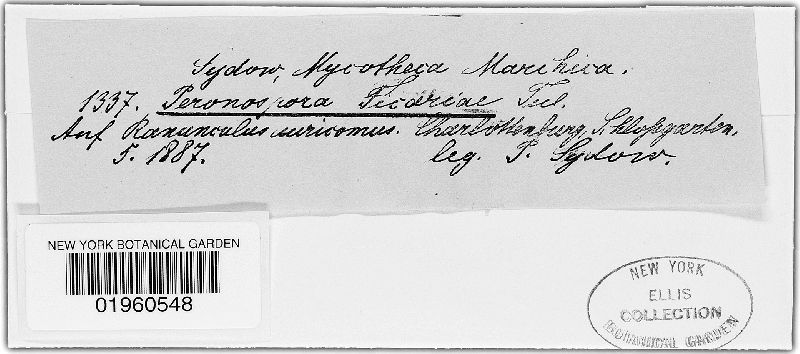 Sydow, Mycotheca Marchica.
1337. Peronospora Ficariae Tul.
Auf Ranunculus auricomus. Charlottenburg, Schloßgarten.
5. 1887. leg. P. Sydow.
NEW YORK BOTANICAL GARDEN
01960548
NEW YORK
ELLIS
COLLECTION
BOTANICAL GARDEN